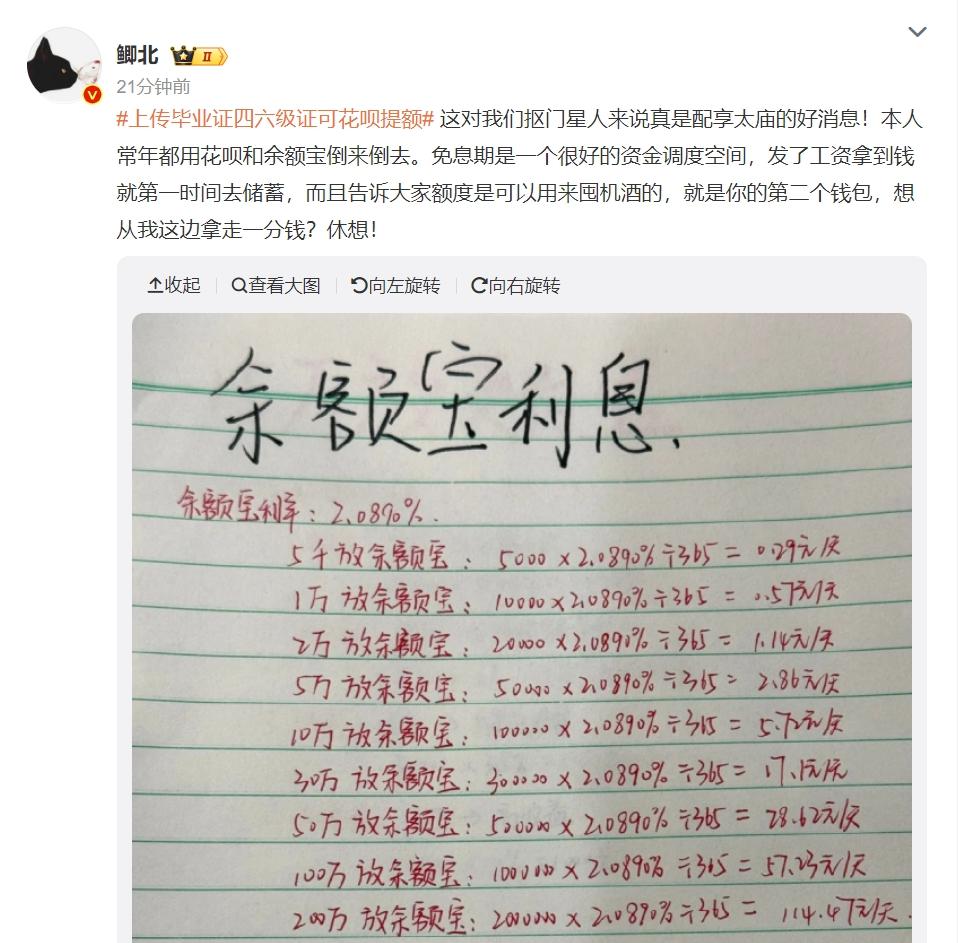 鲫北
II
21分钟前
#上传毕业证四六级证可花呗提额# 这对我们抠门星人来说真是配享太庙的好消息！本人
常年都用花呗和余额宝倒来倒去。免息期是一个很好的资金调度空间，发了工资拿到钱
就第一时间去储蓄，而且告诉大家额度是可以用来囤机酒的，就是你的第二个钱包，想
从我这边拿走一分钱？休想！
收起 查看大图 向左旋转 向右旋转
余额宝利息.
余额宝利率：2.0890%.
5千放余额宝：5000×2.0890%÷365=0.29元/天
1万放余额宝：10000×2.0890%÷365=0.57元/天
2万放余额宝：20000×2.0890%÷365=1.14元/天
5万放余额宝：50000×2.0890%÷365=2.86元/天
10万放余额宝：100000×2.0890%÷365=5.72元/天
30万放余额宝：300000×2.0890%÷365=17.1元/天
50万放余额宝：500000×2.0890%÷365=28.62元/天
100万放余额宝：1000000×2.0890%÷365=57.23元/天
200万放余额宝：2000000×2.0890%÷365=114.47元/天.